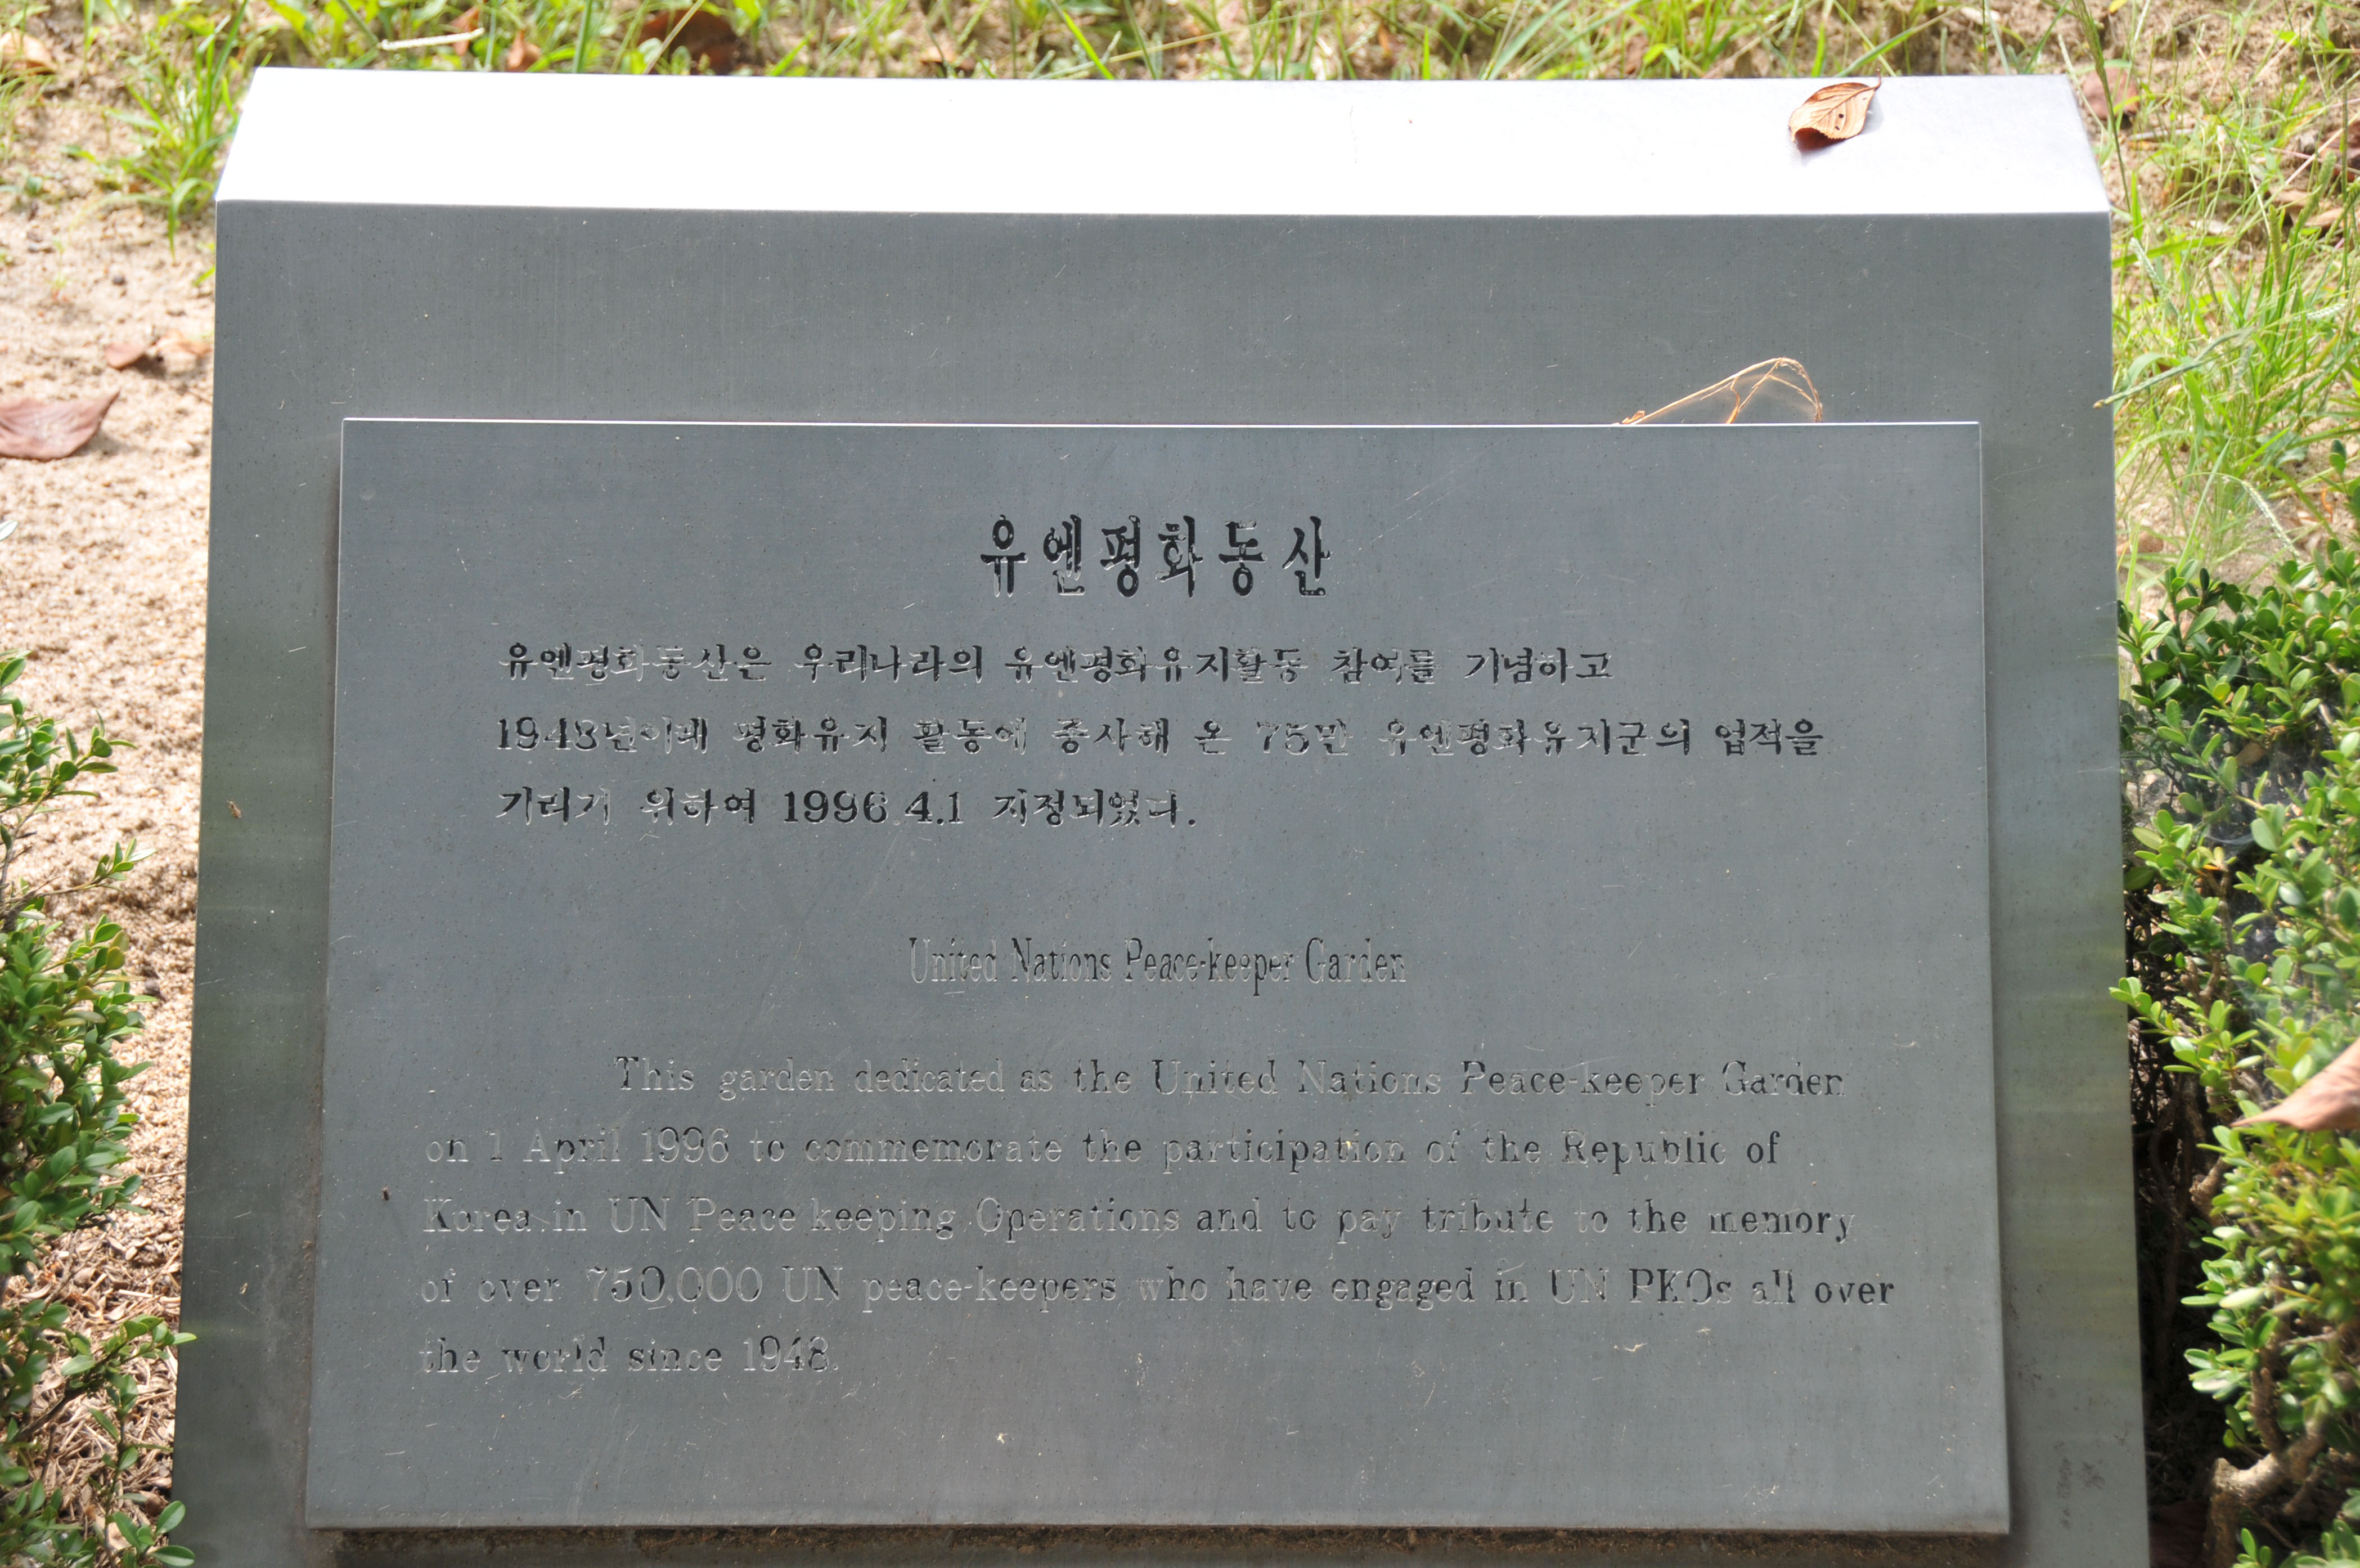 유엔평화동산
유엔평화동산은 우리나라의 유엔평화유지활동 참여를 기념하고
1948년이래 평화유지 활동에 종사해 온 75만 유엔평화유지군의 업적을
기리기 위하여 1996.4.1 지정되었다.
United Nations Peace-keeper Garden
This garden dedicated as the United Nations Peace-keeper Garden
on 1 April 1996 to commemorate the participation of the Republic of
Korea in UN Peace keeping Operations and to pay tribute to the memory
of over 750,000 UN peace-keepers who have engaged in UN PKOs all over
the world since 1948.